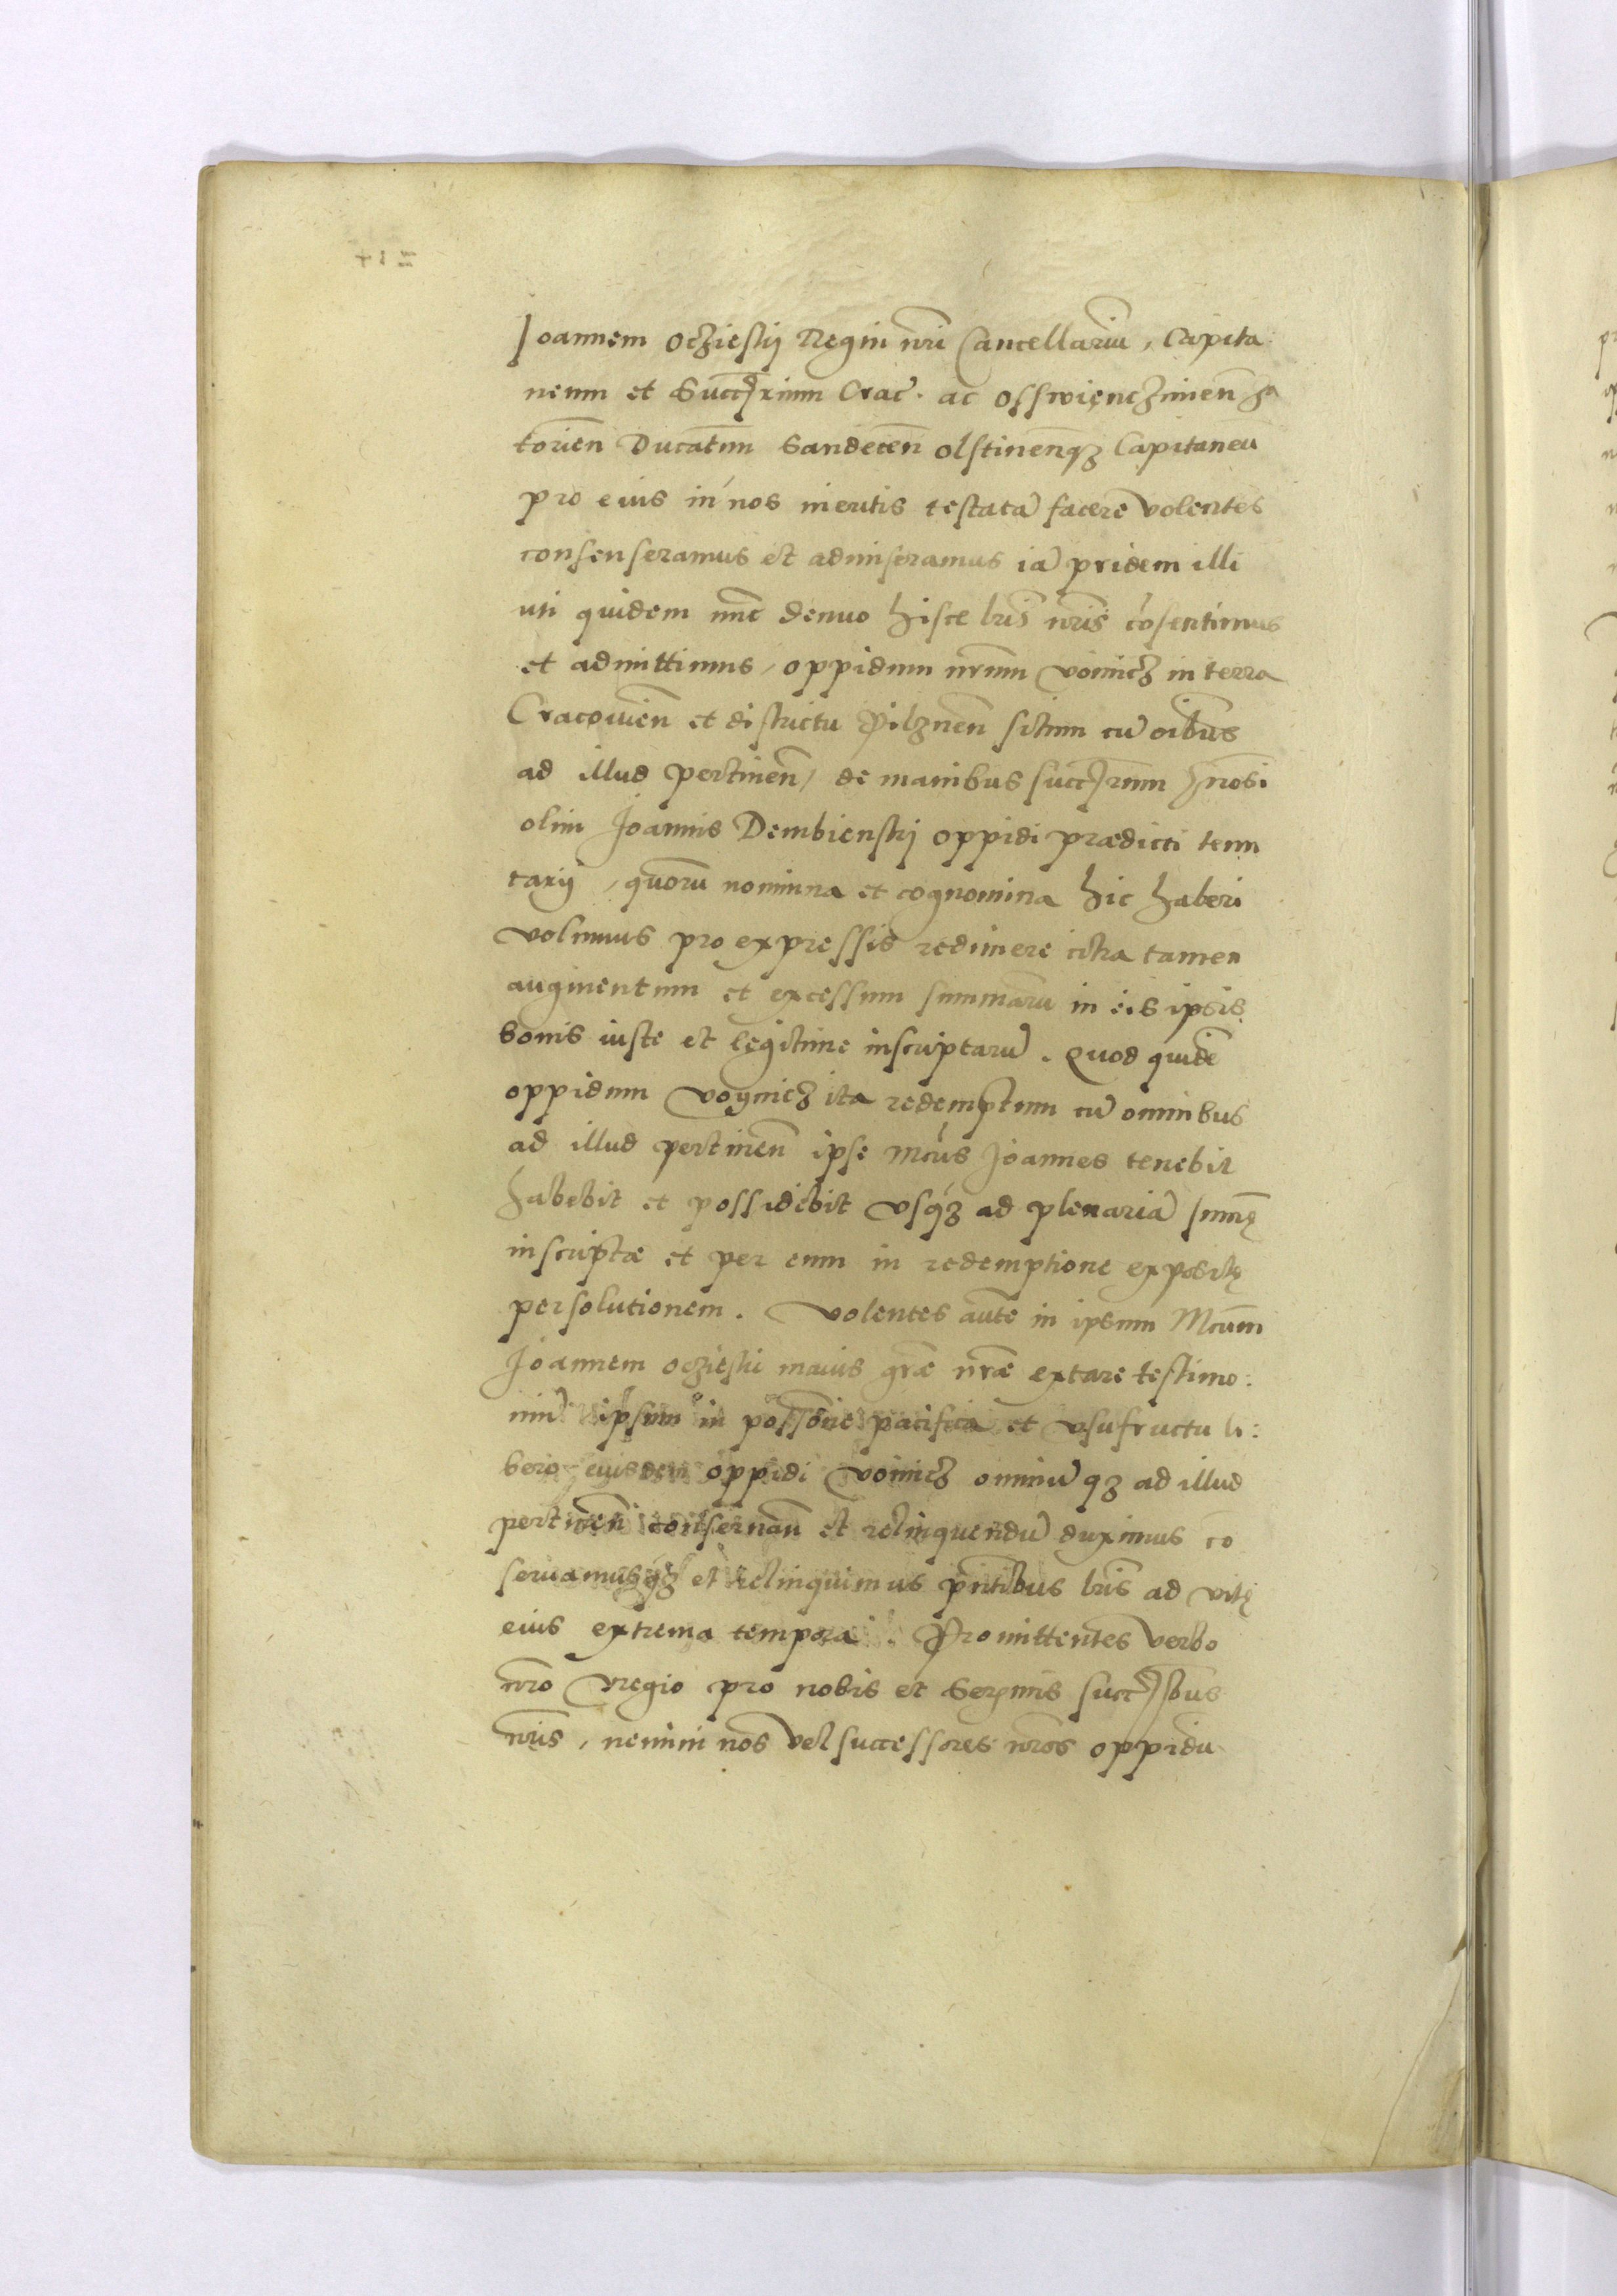 Joannem Ocziesky Regni nri Cancellariu, Capita
neum et Succrium Crac. ac Osswięnczimen̄ Za
torien̄ Ducatum Sandecen̄ Olstinen̄qȝ Capitaneu
pro eius in nos meritis testatā facere volentes
consenseramus et admiseramus iā pridem illi
uti quidem nunc denuo hisce lris nris cōsentimus
et admittimus, oppidum nrum Voinicz in terra
Cracovien̄ et districtu Pilznen̄ situm cū oibus
ad illud pertinen̄, de manibus succrum Gnosi
olim Joannis Dembiensky oppidi prædicti tenu
tarij, quorū nominna et cognomina hic haberi
volumus pro expressis redimere citra tamen
augmentum et excessum summarū in eis ipsis
bonis iuste et legitime inscriptarū. Quod quidē
oppidum Voynicz ita redemptum cū omnibus
ad illud pertinen̄ ipse Mcus Joannes tenebit
habebit et possidebit usqȝ ad plenariā summę
inscriptæ et per eum in redemptione expositę
persolutionem. Volentes autē in ipsum Mcum
Joannem Oczieski maius græ nræ extare testimo:
niū ipsum in possone pacifica et usufructu li:
bero eiusdem oppidi Voinicz omniūqȝ ad illud
pertinen̄ conservan̄ et relinquendū duximus co
servamusqȝ et relinquimus pntibus lris ad vitę
eius extrema tempora. Promittentes verbo
nro Regio pro nobis et Sermis succbus
nris, nemini nos vel successores nros oppidu